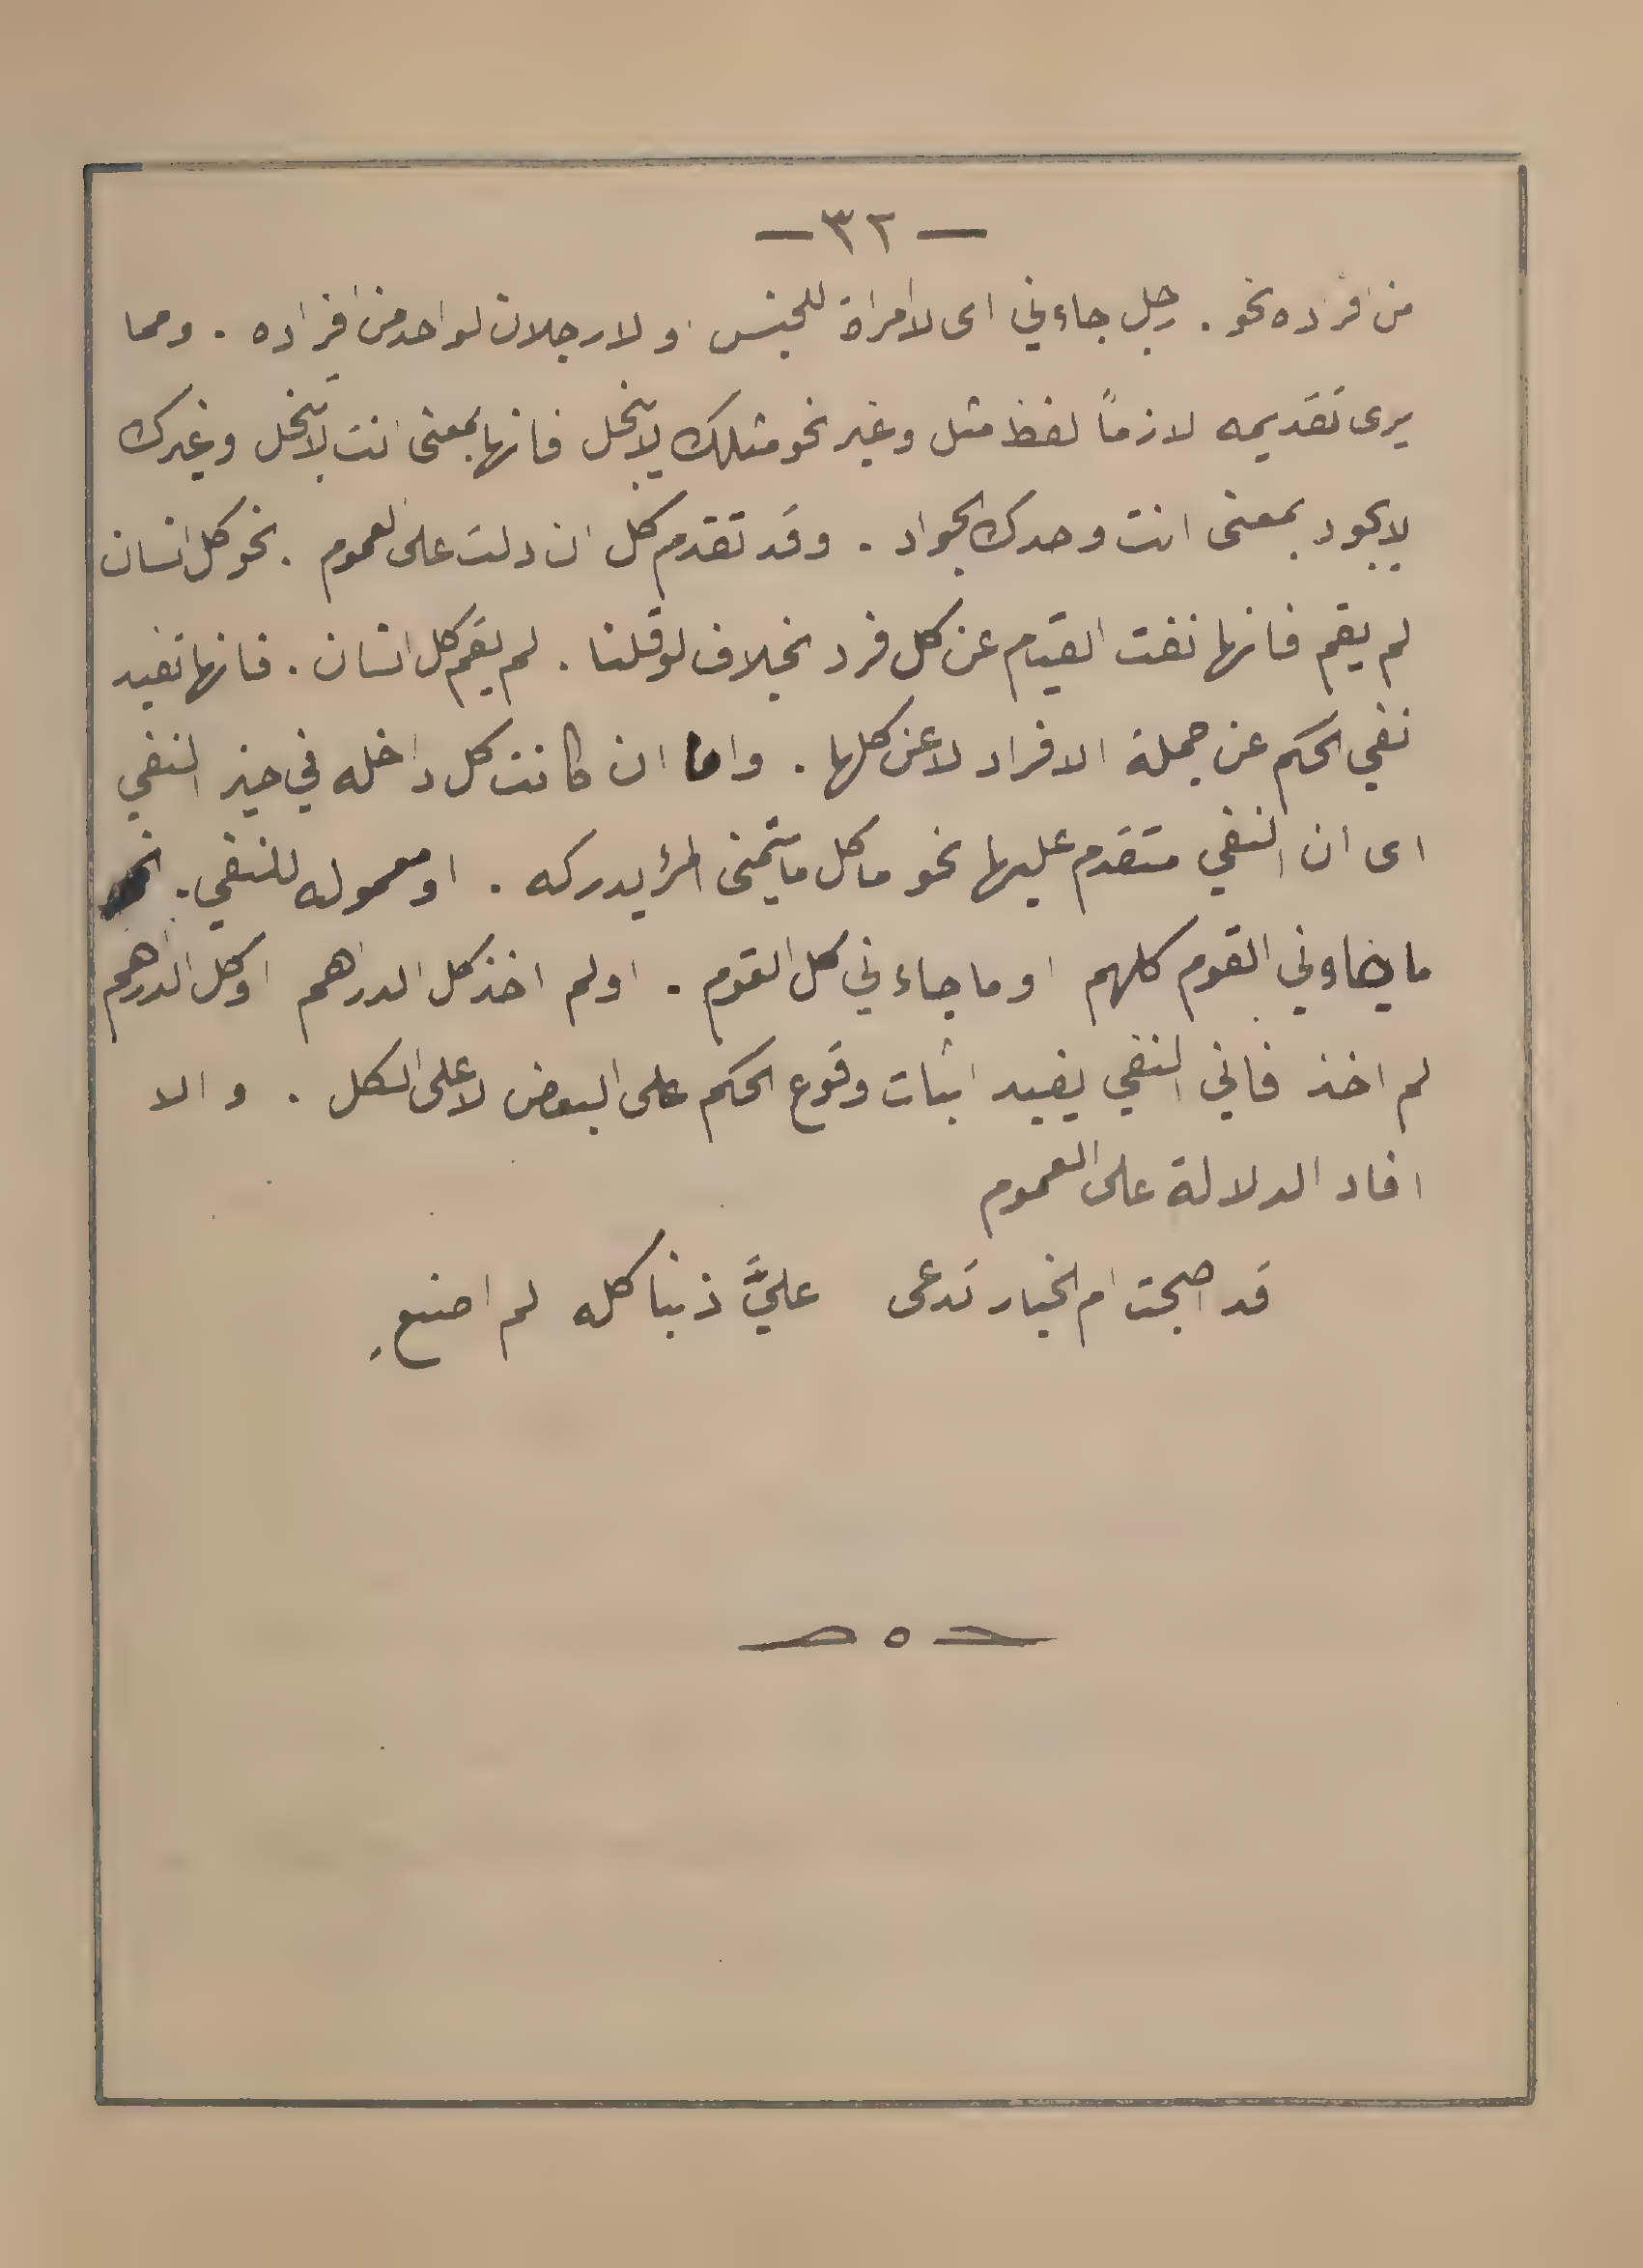 — ٣٢ —
من افراده نحو . رجل جاءني اى لا امراة للجنس او لا رجلان لواحد من افراده . ومما
يرى تقديمه لازماً لفظ مثل وغير نحو مثلك لا يبخل فانها بمعنى انت لا تبخل وغيرك
لا يجود بمعنى انت وحدك الجواد . وقد تقدم كل ان دلت على العموم . نحو كل انسان
لم يقم فانها نفت القيام عن كل فرد بخلاف لو قلنا . لم يقم كل انسان . فانها تفيد
نفي الحكم عن جملة الافراد لا عن كلها . واما ان كانت كل داخله في حيز النفي
اى ان النفي متقدم عليها نحو ما كل ما يتمنى المرؤ يدركه . او معموله للنفي . نحو
ما جاءني القوم كلهم او ما جاءني كل القوم . او لم اخذ كل الدراهم او كل الدرهم
لم اخذ فاني النفي يفيد اثبات وقوع الحكم على البعض لا على الكل . و الا
افاد الدلالة على العموم
قد اصبحت ام الخيار تدعى عليَّ ذنبا كله لم اصنعِ